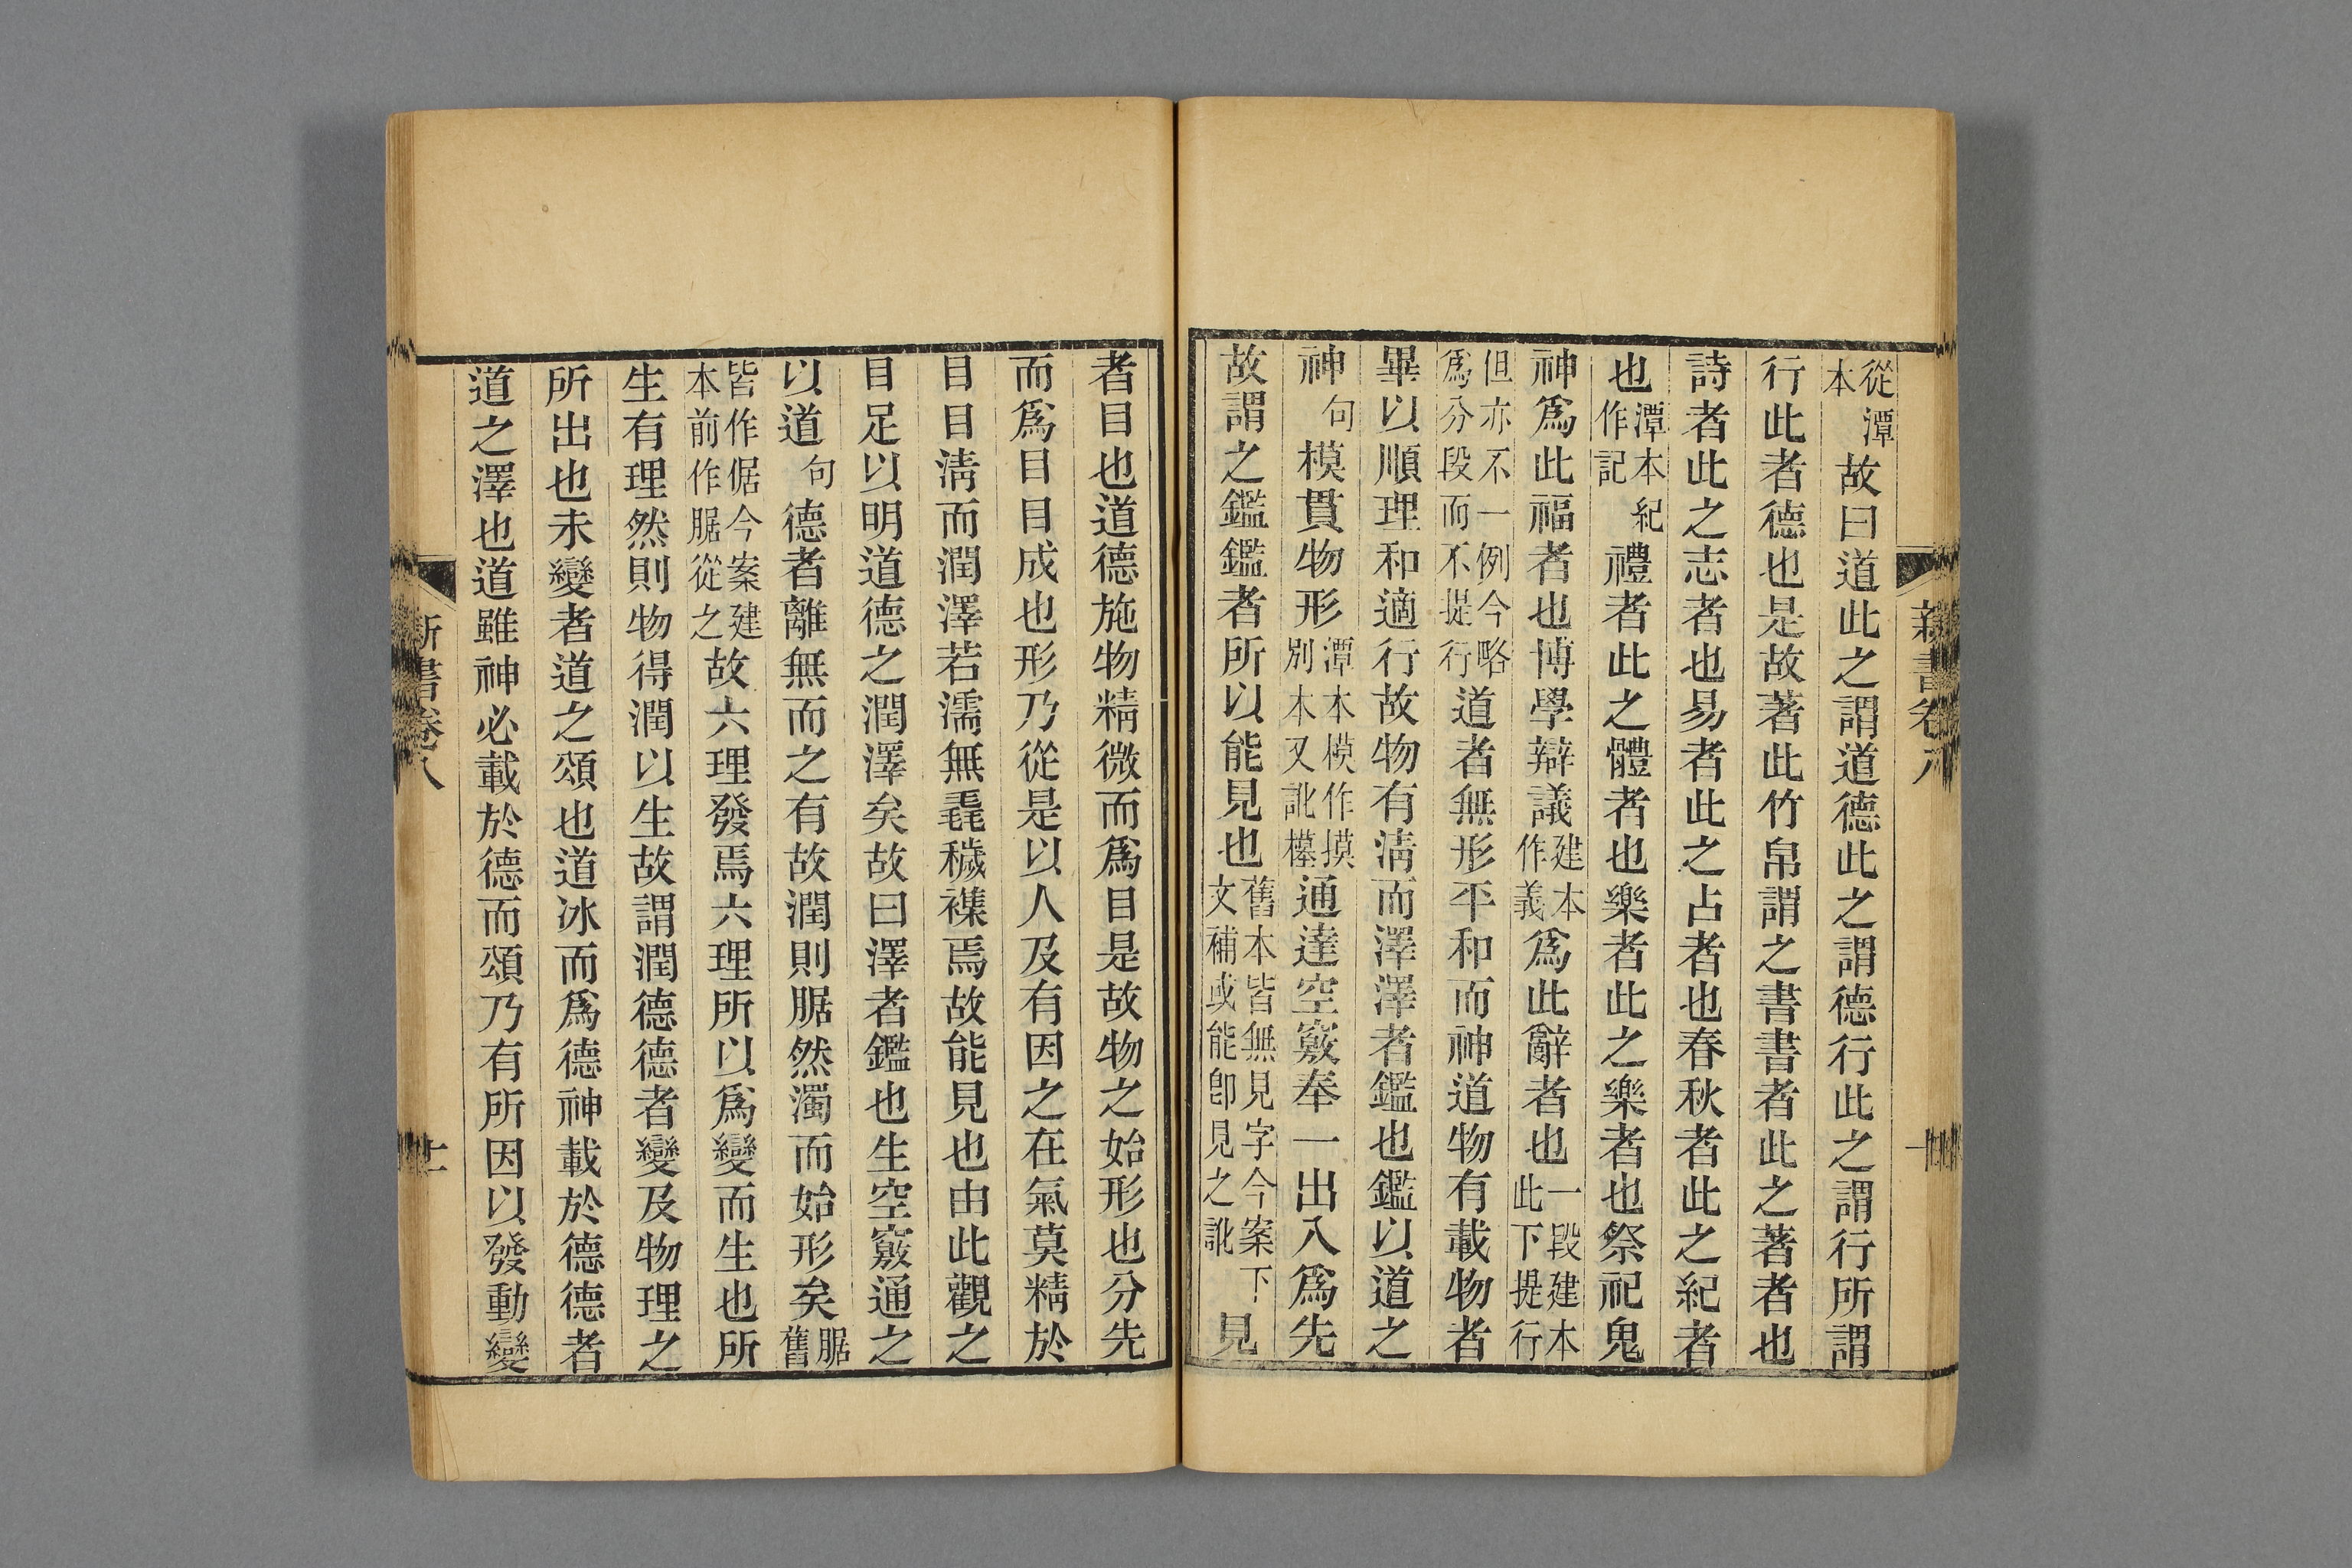 從潭本故曰道此之謂道德此之謂德行此之謂行所謂
行此者德也是故著此竹帛謂之書書者此之著者也
詩者此之志者也易者此之占者也春秋者此之紀者
也潭本紀作記禮者此之體者也樂者此之樂者也祭祀鬼
神爲此福者也博學辯議建本作義爲此辭者也一段建本此下提行
但亦不一例今略爲分段而不提行道者無形平和而神道物有載物者
畢以順理和適行故物有淸而澤澤者鑑也鑑以道之
神句模貫物形潭本模作摸別本又訛㯳通達空竅奉一出入爲先
故謂之鑑鑑者所以能見也舊本皆無見字今案下文補或能卽見之訛見
新書卷八
者目也道德施物精微而爲目是故物之始形也分先
而爲目目成也形乃從是以人及有因之在氣莫精於
目目淸而潤澤若濡無毳穢襍焉故能見也由此觀之
目足以明道德之潤澤矣故曰澤者鑑也生空竅通之
以道句德者離無而之有故潤則腒然濁而始形矣腒舊
皆作倨今案建本前作腒從之故六理發焉六理所以爲變而生也所
生有理然則物得潤以生故謂潤德德者變及物理之
所出也未變者道之頌也道冰而爲德神載於德德者
道之澤也道雖神必載於德而頌乃有所因以發動變
新書卷八
十一